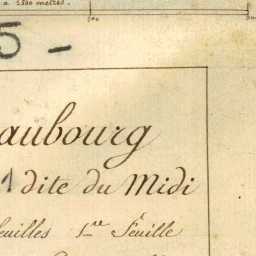 a 2500 metres.
5 -
aubourg
1 dite du Midi
euilles 1re Feuille